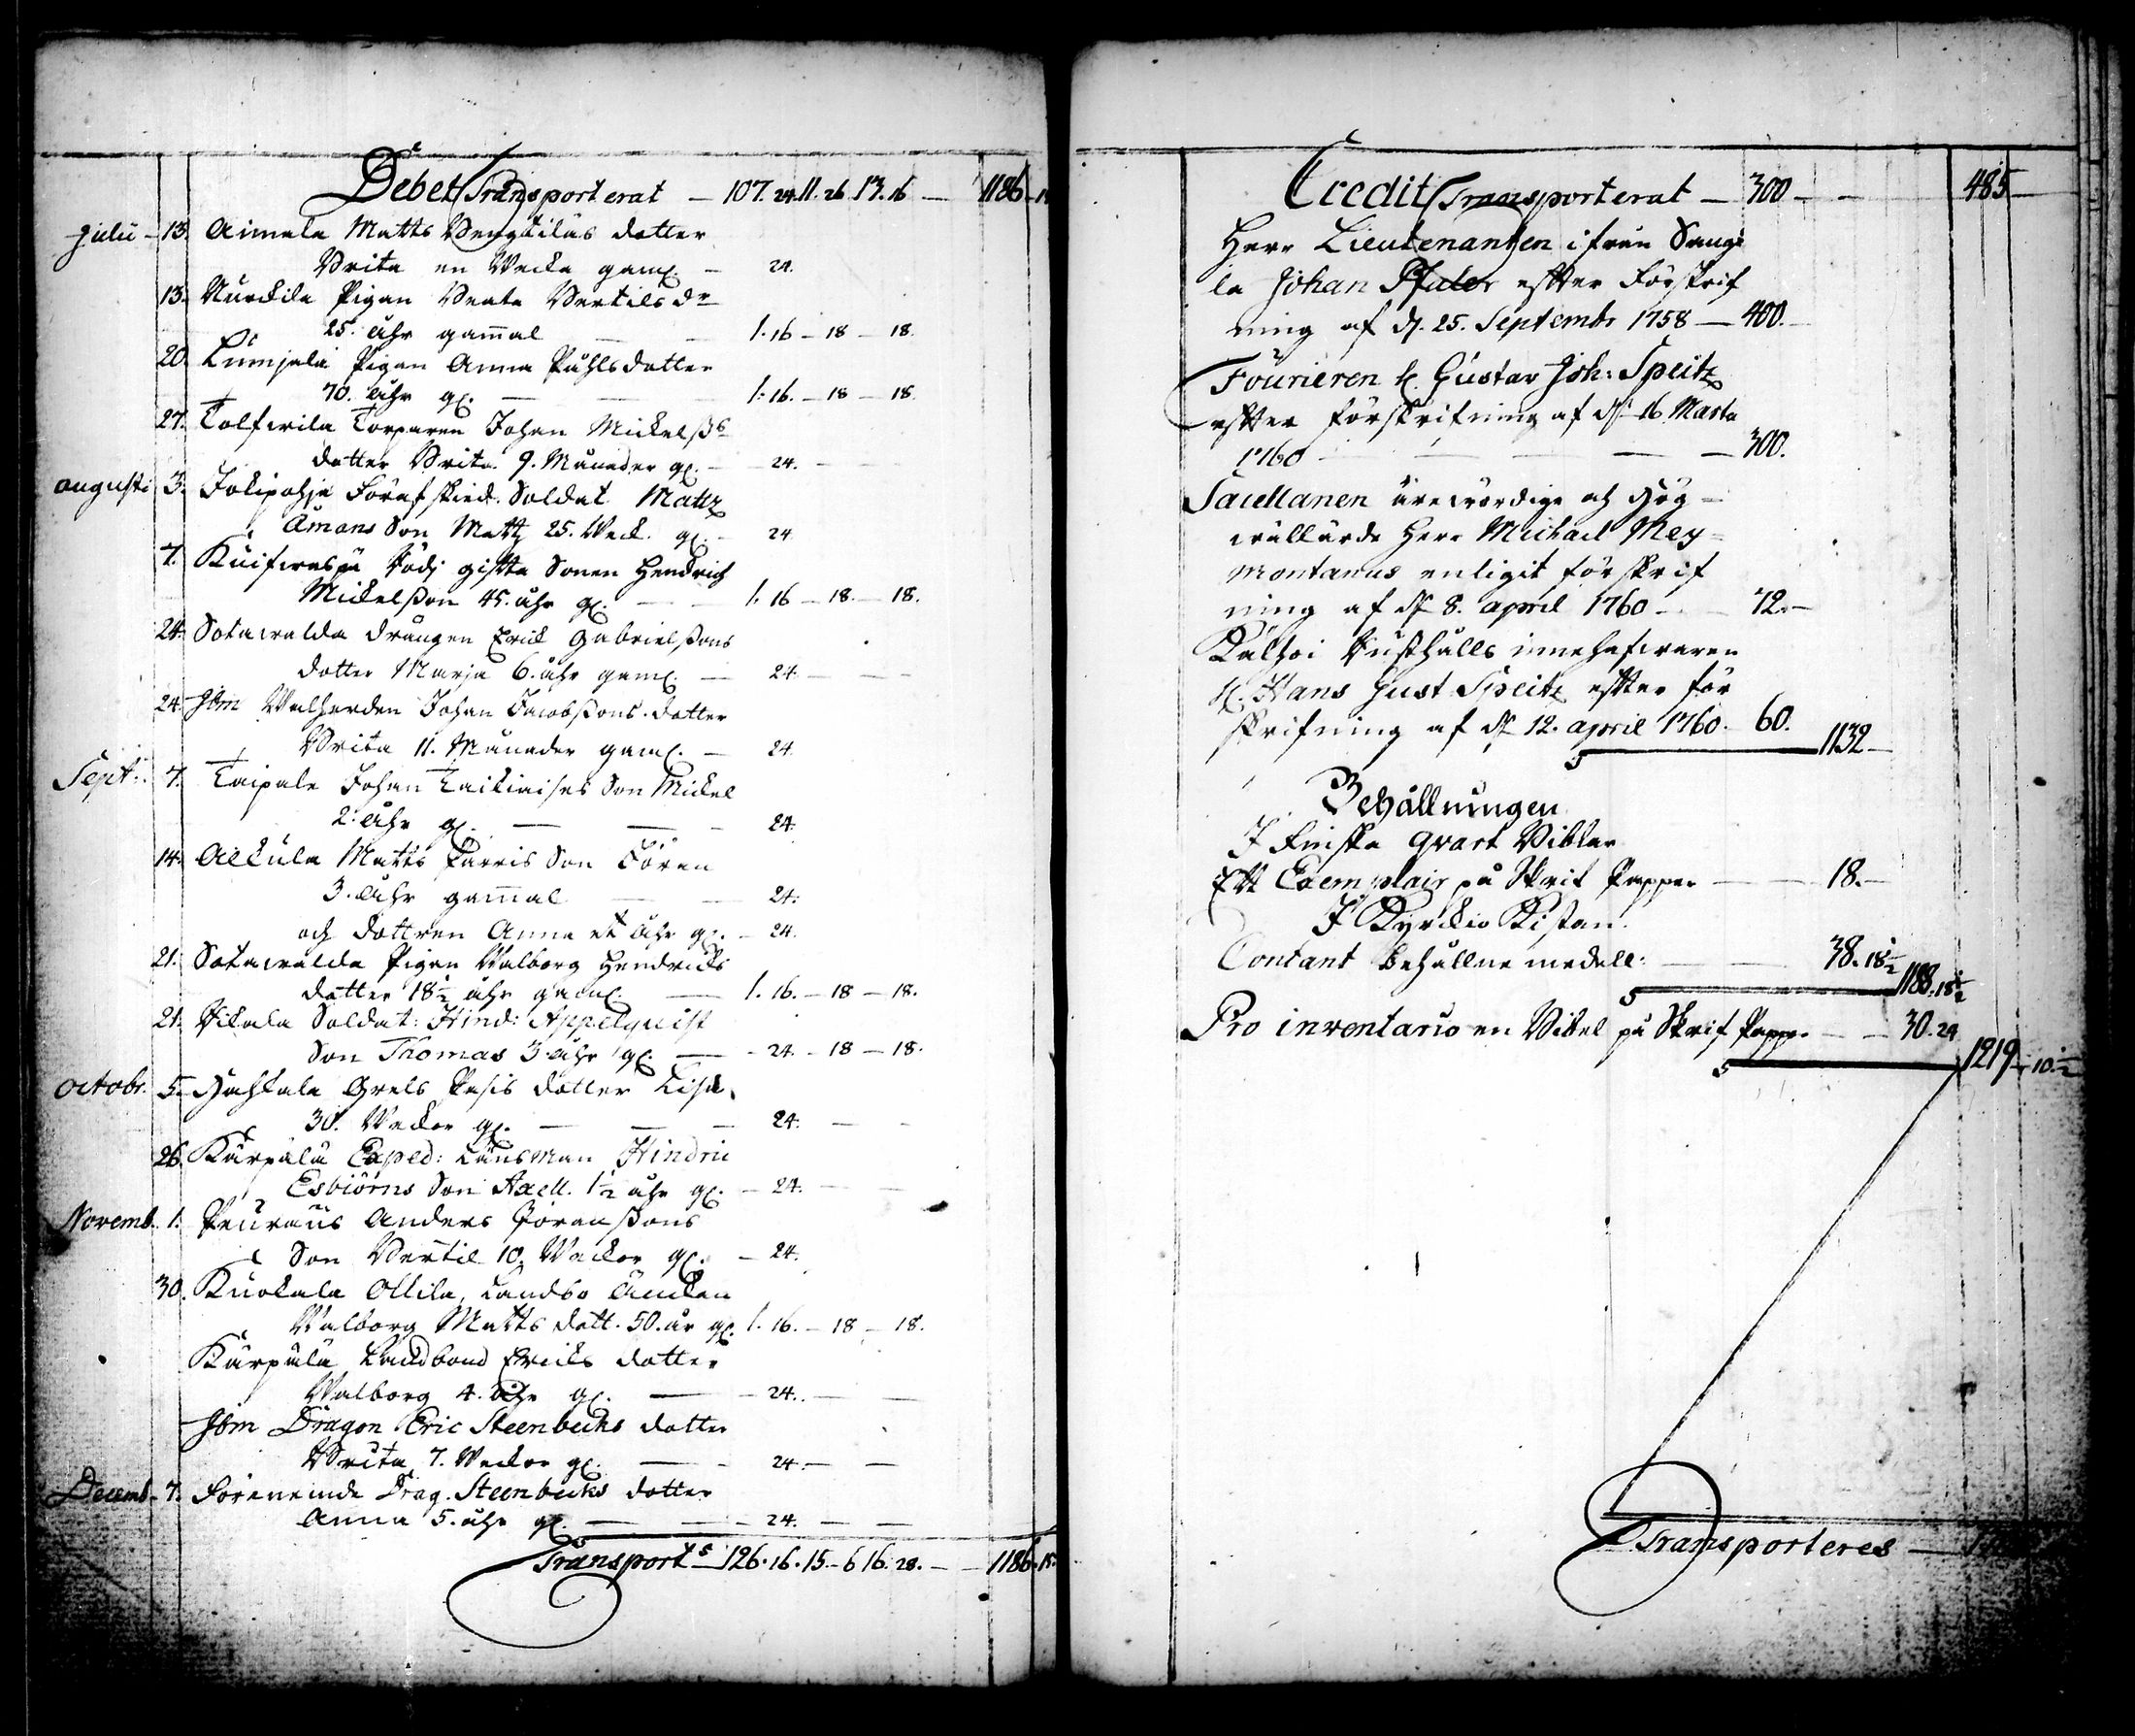 Debet Transporterat — 107. 24. 11. 26 13. 16 — 1186 - 15
Julii - 13. Aimala Matts Bengtilas dotter
Brita en Wecka gaml. — 24.
13. Nurckila Pigan Beata Bertils dr
25. åhr gammal — 1. 16 — 18 — 18.
20. Lumjala Pigan Anna Påhlsdotter
70. åhr gl. — 1. 16. — 18 — 18.
27. Tolfwila Torparen Johan Mickelss
dotter Brita 9. Månader gl. — 24. —
augusti 3. Jokipohja Förafskied. Soldat Mattz
Åmans Son Mattz 25. Weck. gl. — 24
7. gifta Sonen Hendrich
Mickelsson 45. åhr gl. — 1. 16 — 18. — 18.
24. Sotawalda drängen Erick Gabrielssons
dotter Marja 6. åhr gaml. — 24. —
24. Ibm Walherden Johan Jacobssons dotter
Brita 11. Månader gaml. — 24.
Sept. 7. Taipale Johan Son Mickel
2. åhr gl. — 24.
14. Alkula Matts Parris Son Jören
3. åhr gammal — 24.
och dottren Anna et åhr gl. — 24.
21. Sotawalda Pigan Walborg Hendricks
dotter 18½ åhr gaml. — 1. 16. — 18 — 18.
21. Vikala Soldat: Hind: Appelquist
Son Thomas 3 åhr gl. — 24. — 18 — 18.
Octobr. 5. Hahkala Grels Pasis dotter Lisa
30. Weckor gl. — 24. —
26. Karpala Exped: Länsman Hindric
Esbiörns Son Axell. 1½ åhr gl. — 24. —
Novemb. 1. Anders Göranssons
Son Bertil 10. Weckor gl. — 24.
30. Kuokala Ollila, Landbo Änckan
Walborg Matts dott. 50. år gl. 1. 16. — 18 — 18.
Karpala Landbond Ericks dotter
Walborg 4. åhr gl. — 24. —
Ibm Dragon Eric Steenbecks dotter
Brita 7. Weckor gl. — 24. —
Decemb. 7. Förenemde Drag. Steenbecks dotter
Anna 5. åhr gl. — 24. —
Transports — 126. 16. 15. — 6 16. 28. — 1186. 15.
Credit Transporterat — 300 — 485 —
Herr Lieutenanten ifrån Saugi
la Johan Pfaler efter Förskrif
ning af d. 25. Septembr 1758 — 400. —
Fourieren H. Gustav Joh: Speitz
efter förskrifning af d. 16 Marta
1760 — 300.
Sacellanen ärewördige och Hög-
wällärde Herr Michael Mey-
montanus enligit förskrif
ning af d. 8. april 1760 — 72. —
Kalhoi Rusthålls innehafwaren
H. Hans Gust Speitz efter för
skrifning af d. 12. april 1760. 60. 1132 —
Behållningen
I Finska Qvart Biblar
Ett Exemplair på Skrif Papper — 18. —
I Kyrckio Kistan.
Contant behållne medell: — 38. 18½ 1188. 18½
Pro inventario en Bibel på Skrif Papp. — 30. 24
1219 - 10½
Transporteres —